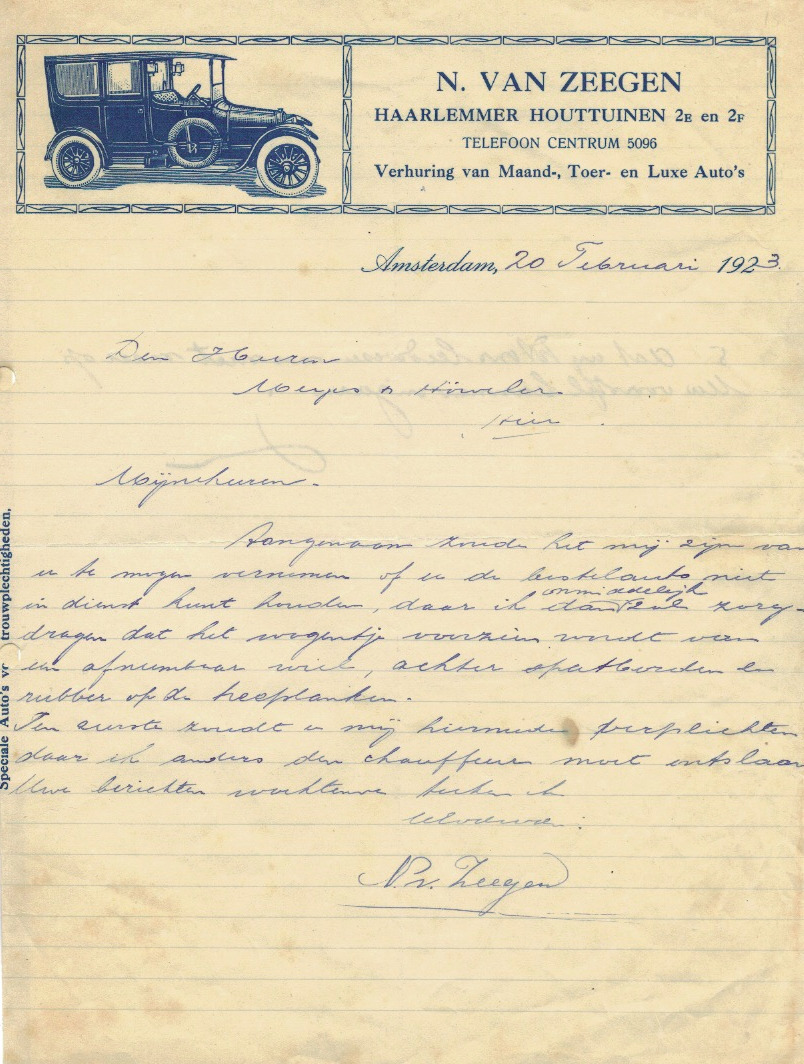 N. VAN ZEEGEN
HAARLEMMER HOUTTUINEN 2E en 2F
TELEFOON CENTRUM 5096
Verhuring van Maand-, Toer- en Luxe Auto's
Amsterdam, 20 Februari 1923.
Den Heeren
Meyjes & Höweler
Hier
Mijneheeren.
Aangenaam zoude het mij zijn van
u te mogen vernemen of u de bestelauto niet
onmiddelijk
in dienst kunt houden, daar ik dan zal zorg-
dragen dat het wagentje voorzien wordt van
een afneembaar wiel, achter spatborden en
rubber op de treeplanken.
Ten eerste zoudt u mij hiermede verplichten
daar ik anders den chauffeur moet ontslaan
Uwe berichten wachtende teeken ik
N. v. Zeegen
Speciale Auto's vo trouwplechtigheden,